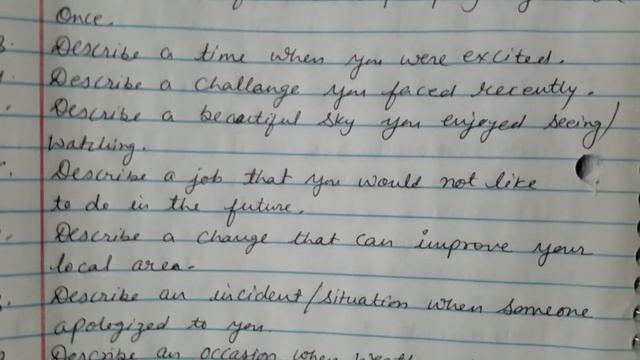 Once.
Describe a time when you were excited.
Describe a challange you faced recently.
Describe a beautiful sky you enjoyed seeing/
watching.
Describe a job that you would not like
to do in the future.
Describe a change that can improve your
local area.
Describe an incident/situation when someone
apologized to you.
Describe an occasion when